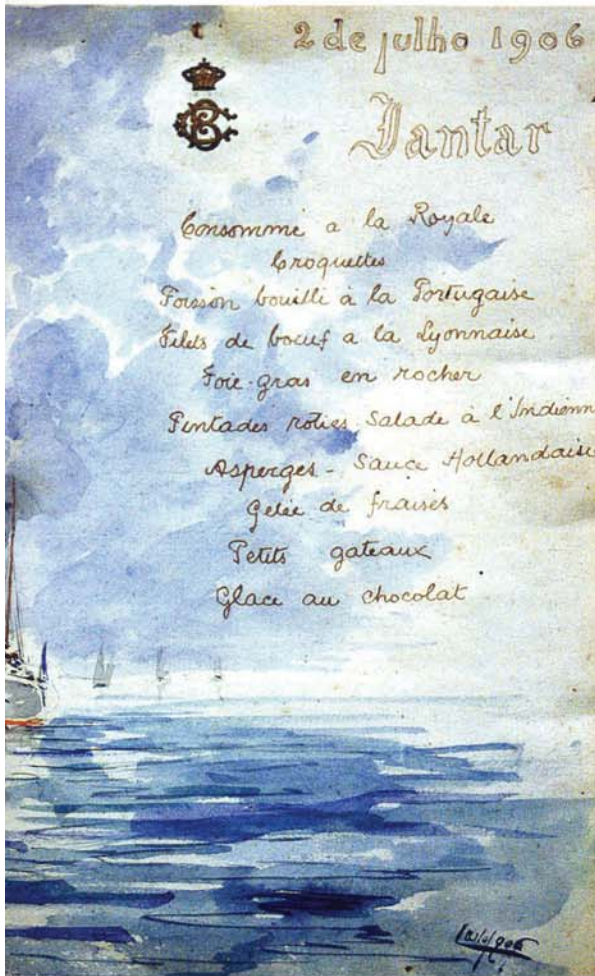 2 de julho 1906
Jantar
Consommé a la Royale
Croquettes
Poisson bouilli à la Portugaise
Filets de boeuf a la Lyonnaise
Foie-gras en rocher
Pintades roties Salade à l'Indienn
Asperges - Sauce Hollandaise
Gelée de fraises
Petits gateaux
Glace au chocolat